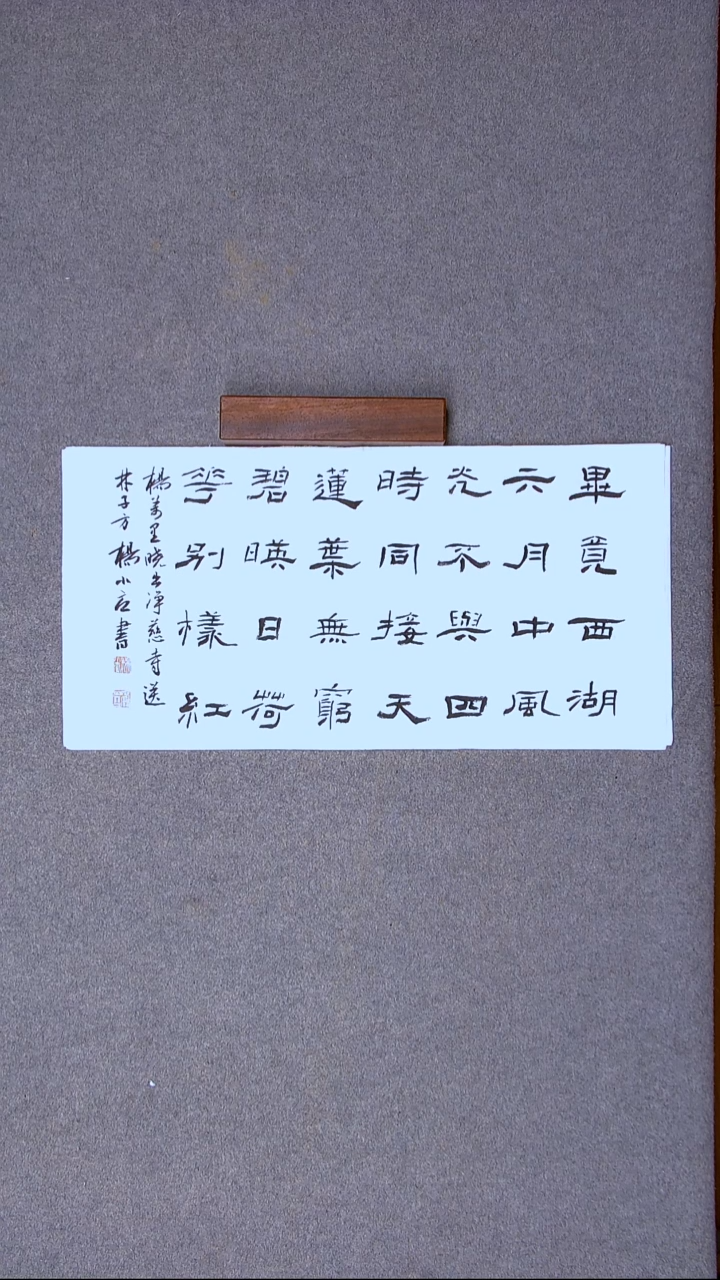 畢竟西湖
六月中風
光不與四
時同接天
蓮葉無窮
碧暎日荷
花别樣紅
楊萬里晓出淨慈寺送
林子方楊小言書